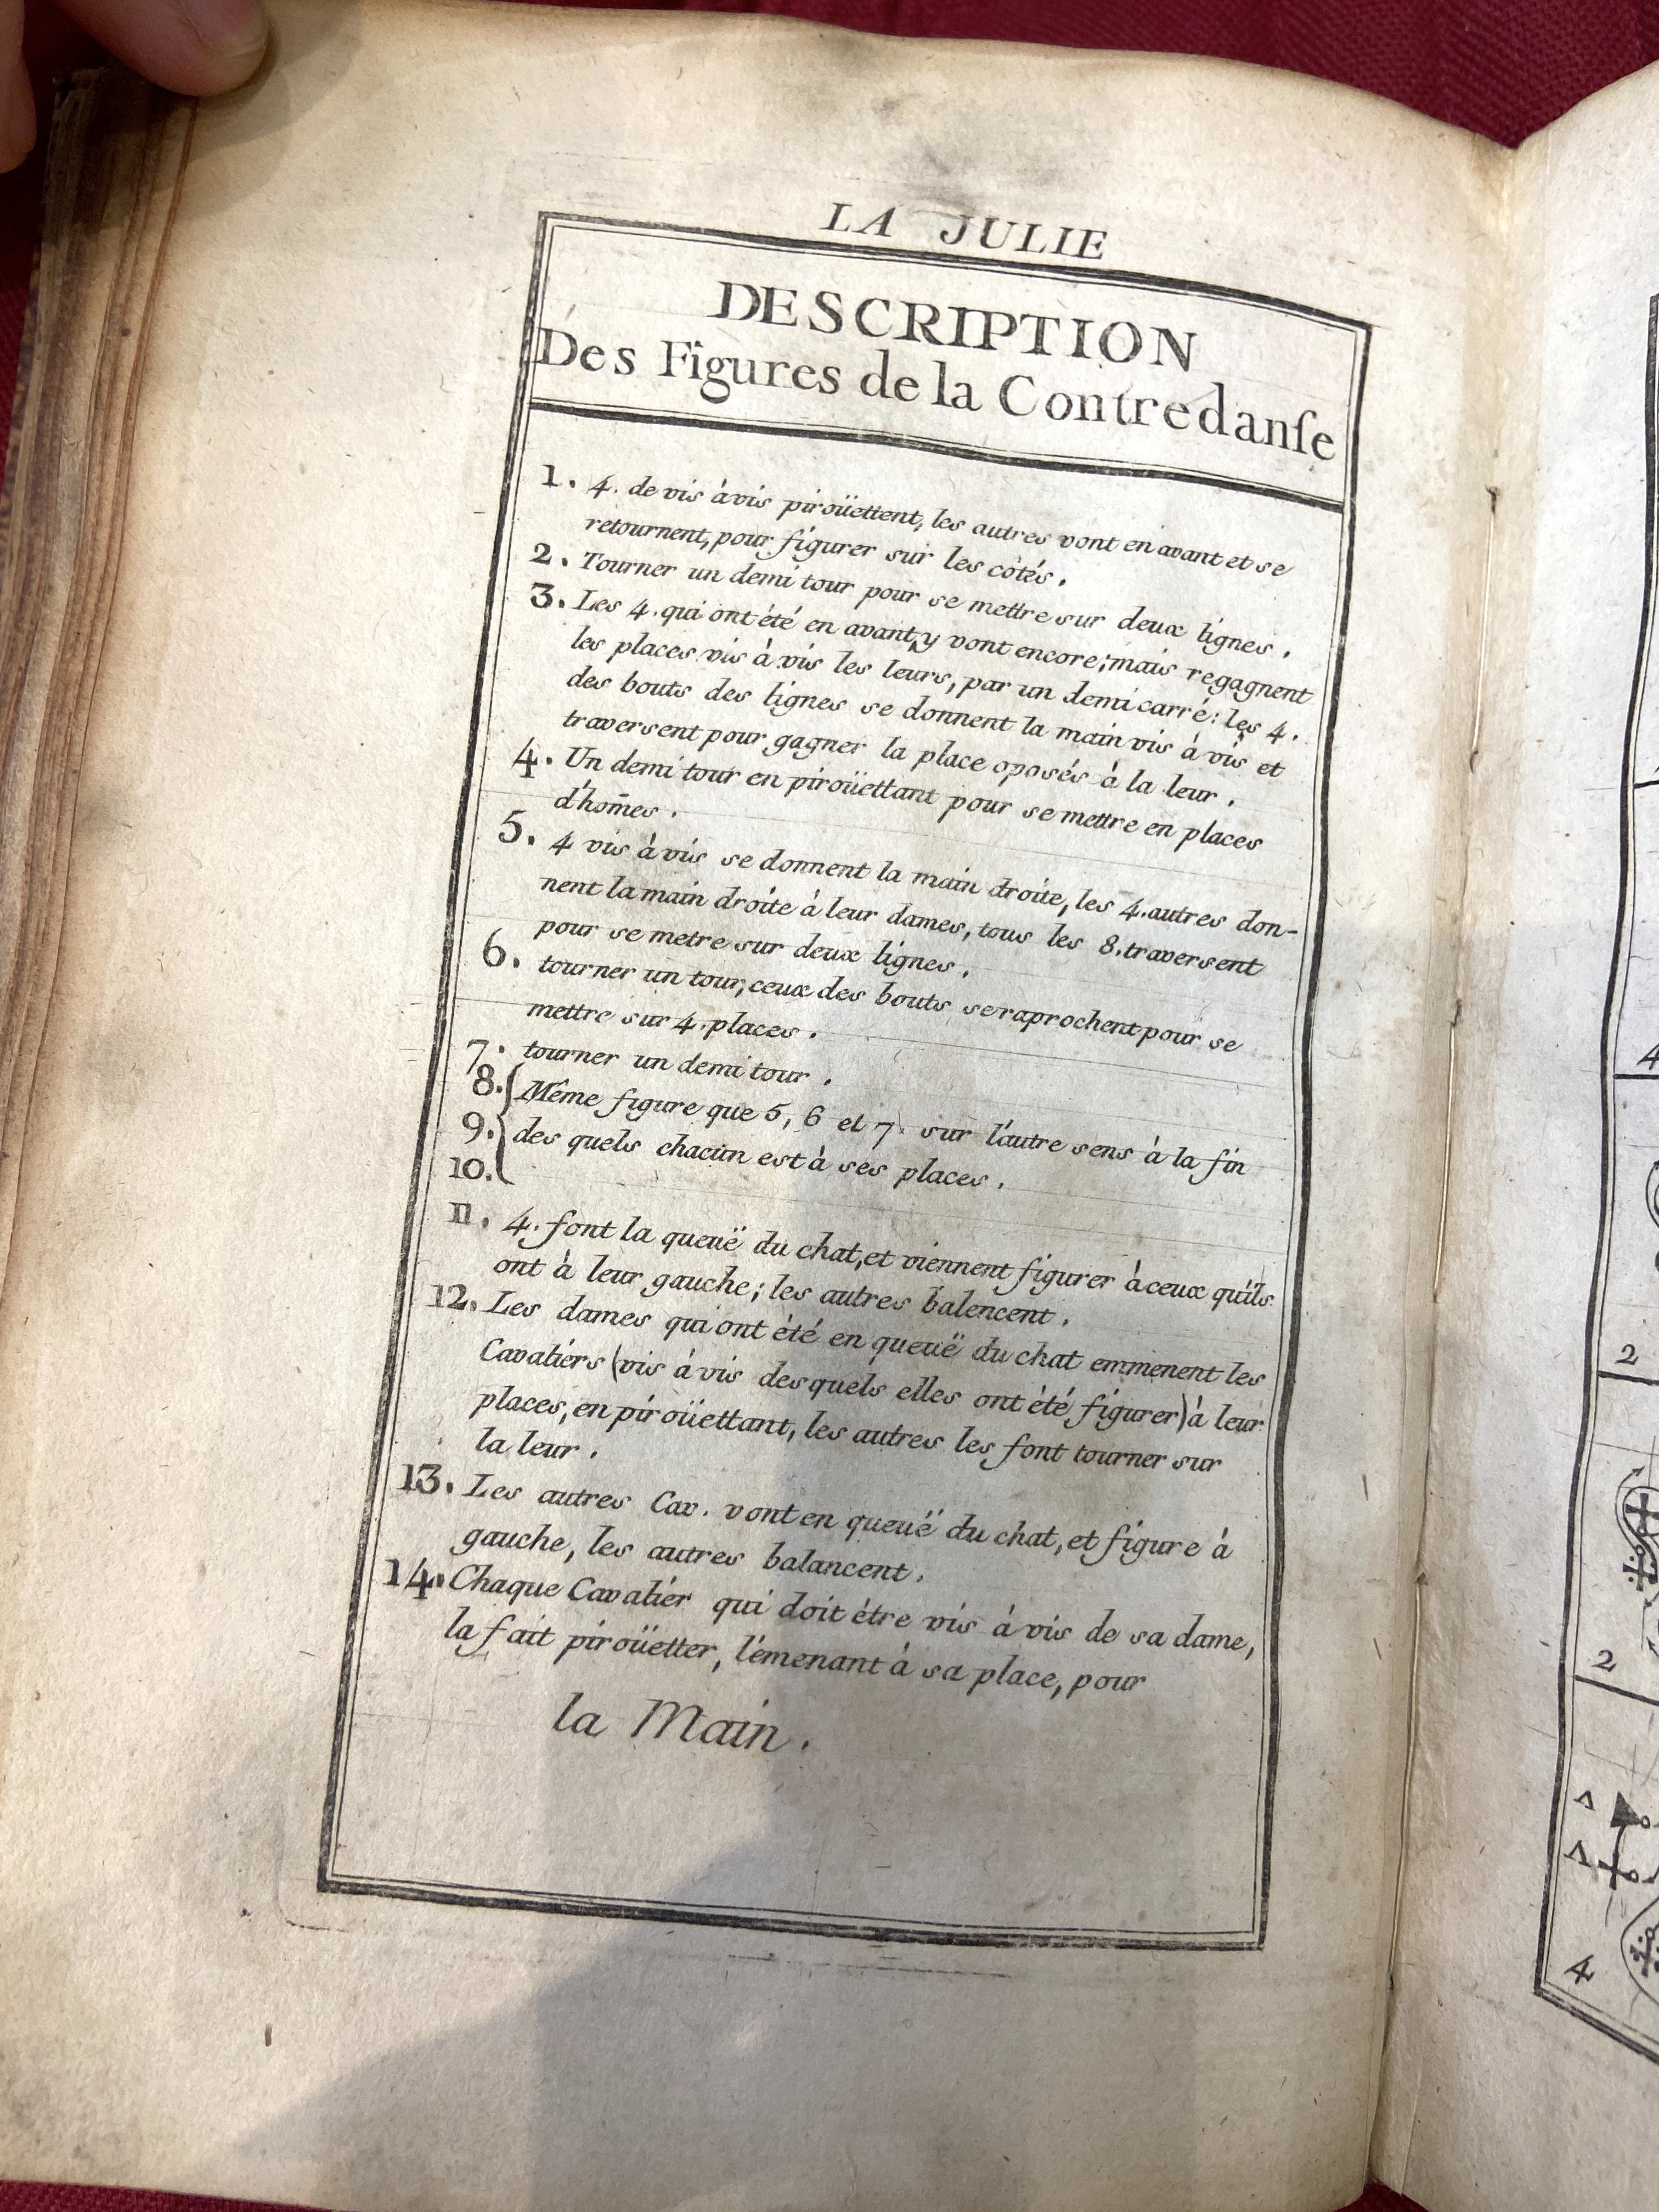 LA JULIE
DESCRIPTION
Des Figures de la Contredanſe
1. 4. de vis à vis piroüettent, les autres vont en avant et se
retournent, pour figurer sur les côtés.
2. Tourner un demi tour pour se mettre sur deux lignes.
3. Les 4. qui ont été en avant, y vont encore; mais regagnent
les places vis à vis les leurs, par un demi carré: les 4.
des bouts des lignes se donnent la main vis à vis et
traversent pour gagner la place oposés à la leur.
4. Un demi tour en piroüettant pour se mettre en places
d'hom̄es.
5. 4 vis à vis se donnent la main droite, les 4. autres don-
nent la main droite à leur dames, tous les 8. traversent
pour se metre sur deux lignes.
6. tourner un tour, ceux des bouts se raprochent pour se
mettre sur 4. places.
7. tourner un demi tour.
8. Même figure que 5, 6 et 7. sur l'autre sens à la fin
9. des quels chacun est à ses places.
10.
11. 4. font la queuë du chat, et viennent figurer à ceux qu'ils
ont à leur gauche; les autres balencent.
12. Les dames qui ont été en queuë du chat emmenent les
Cavaliers (vis à vis desquels elles ont été figurer) à leur
places, en piroüettant, les autres les font tourner sur
la leur.
13. Les autres Cav. vont en queuë du chat, et figure à
gauche, les autres balancent.
14. Chaque Cavalier qui doit être vis à vis de sa dame,
la fait piroüetter, l'émenant à sa place, pour
la Main.
4
2
2
4